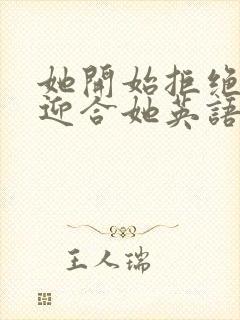 她開始拒絕
迎合她英語
王人瑞